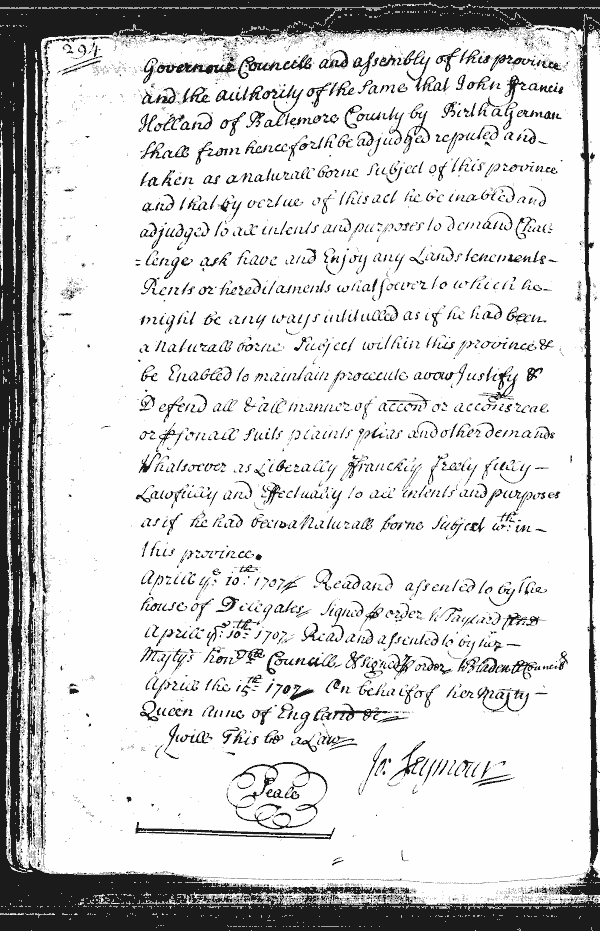 294
Governour Councill and assembly of this province
and the authority of the same that John Francis
Holland of Baltemore County by Birth a German
shall from henceforth be adjudged reputed and -
taken as a naturall borne subject of this province
and that by vertue of this act he be inabled and
adjudged to all intents and purposes to demand Chal:
=lenge ask have and Enjoy any Lands tenements -
Rents or hereditaments whatsoever to which he -
might be any ways intitulled as if he had been
a naturall borne Subject within this province &
be Enabled to maintain prosecute avow Justify &
Defend all & all manner of accon or accons real
or psonall suits plaints pleas and other demands
Whatsoever as Liberally ffranckly freely fully -
Lawfully and Effectually to all intents and purposes
as if he had been a Naturall borne Subject wth in -
this province.
Aprill ye 10th 1707 Read and assented to by the
house of Delegates signed p order W Taylard
Aprill ye 10th 1707 Read and assented to by her -
Majtys honble Councill & signed p order W Bladen Cl Councill
Aprill the 15th 1707 On behalf of her Majty -
Queen Anne of England &c
I will This be a Law
Jo: Seymour
Seale